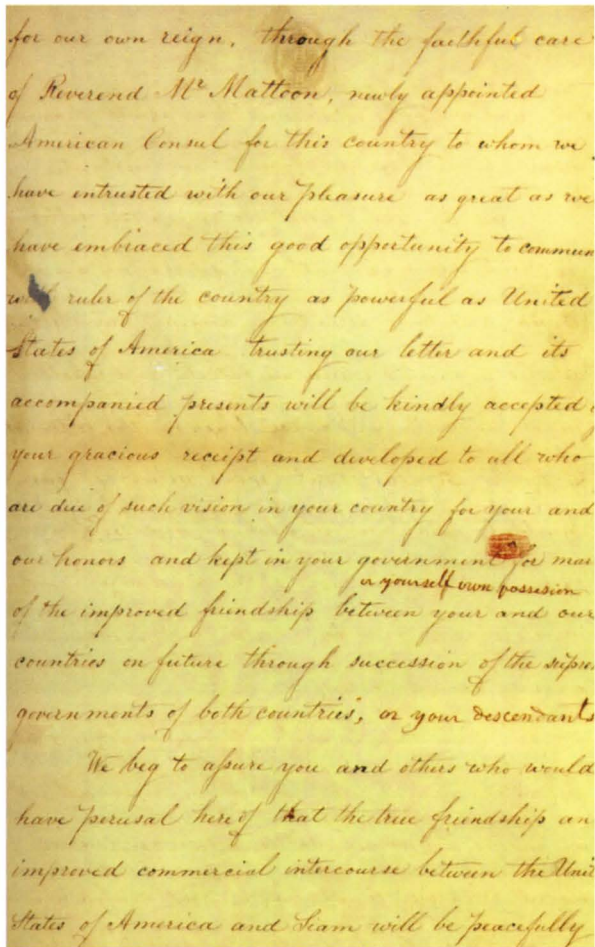 for our own reign, through the faithful care
of Reverend Mr Mattoon, newly appointed
American Consul for this country to whom we
have entrusted with our pleasure as great as we
have embraced this good opportunity to commun
with ruler of the country as powerful as United
States of America trusting our letter and its
accompanied presents will be kindly accepted
your gracious receipt and developed to all who
are due of such vision in your country for your and
our honors and kept in your government for mar
or yourself own possesion
of the improved friendship between your and our
countries on future through succession of the suprem
governments of both countries, or your descendants
We beg to assure you and others who would
have perusal hereof that the true friendship an
improved commercial intercourse between the Unit
States of America and Siam will be peacefully